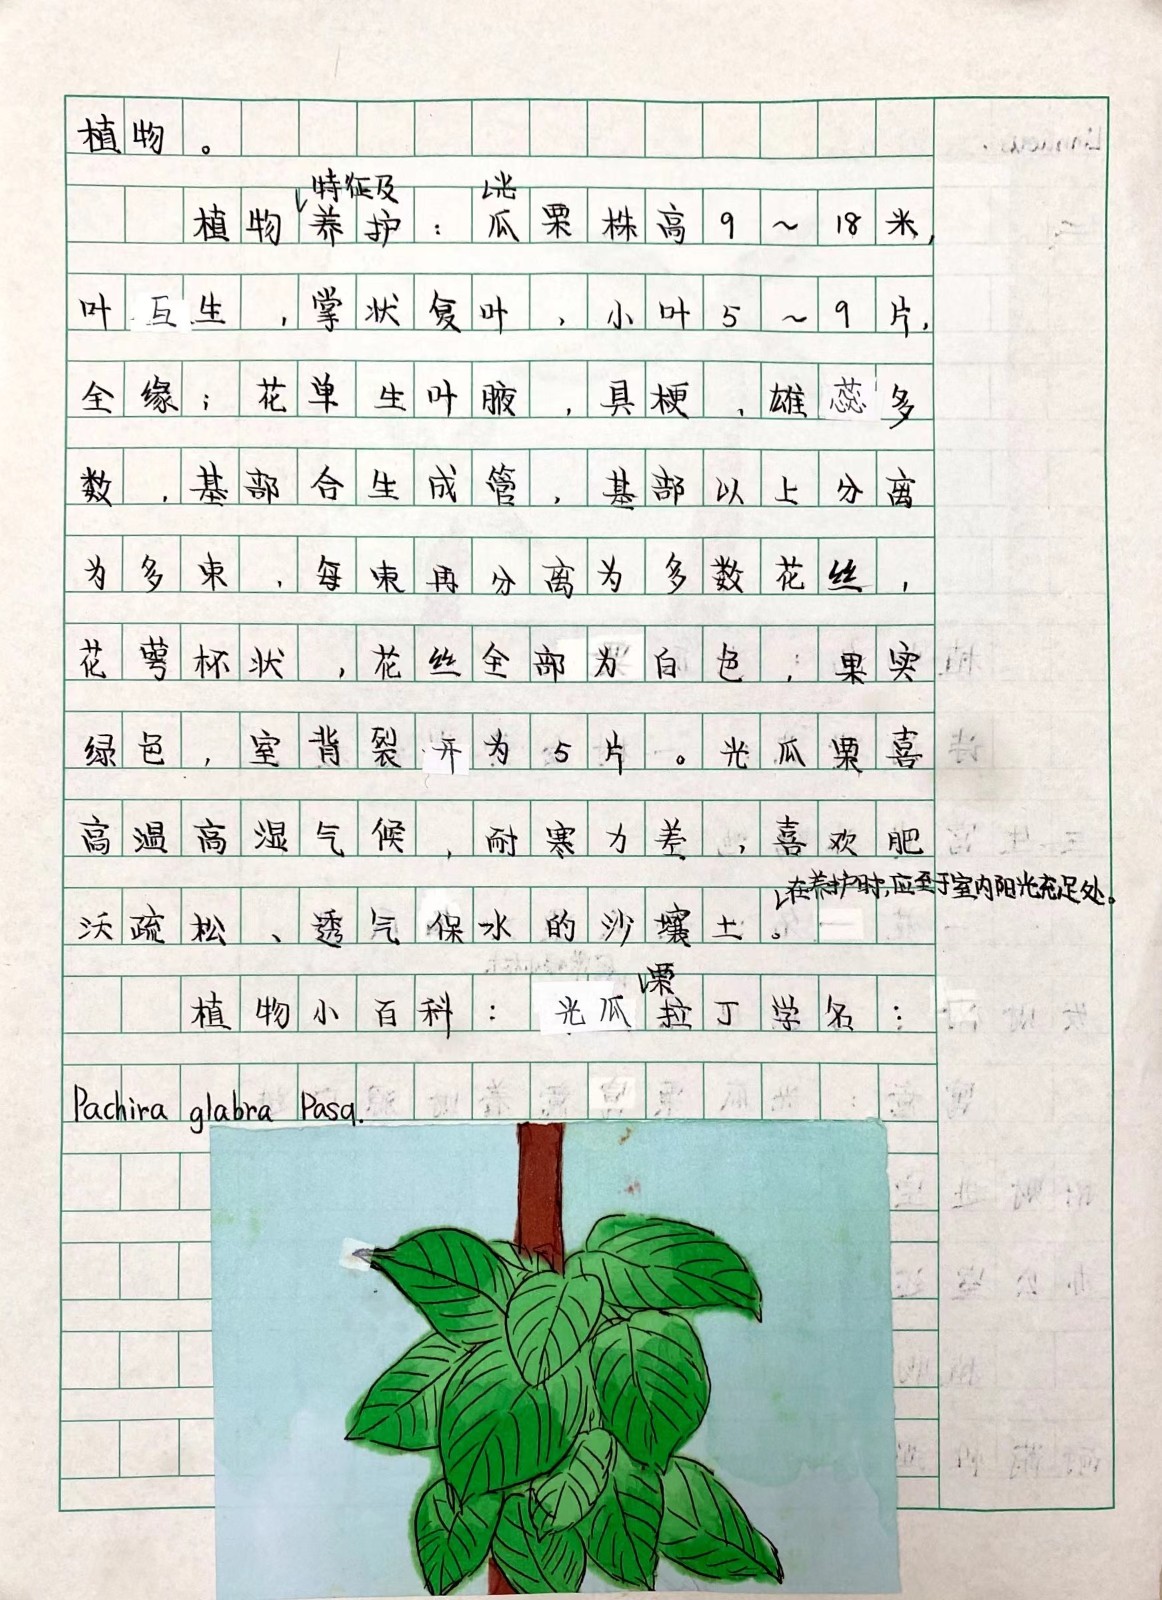 植物。
植物特征及养护：光瓜栗株高9～18米，
叶互生，掌状复叶，小叶5～9片，
全缘；花单生叶腋，具梗，雄蕊多
数，基部合生成管，基部以上分离
为多束，每束再分离为多数花丝，
花萼杯状，花丝全部为白色；果实
绿色，室背裂开为5片。光瓜栗喜
高温高湿气候，耐寒力差，喜欢肥
沃疏松、透气保水的沙壤土。在养护时,应至于室内阳光充足处。
植物小百科：光瓜栗拉丁学名：
Pachira glabra Pasq.